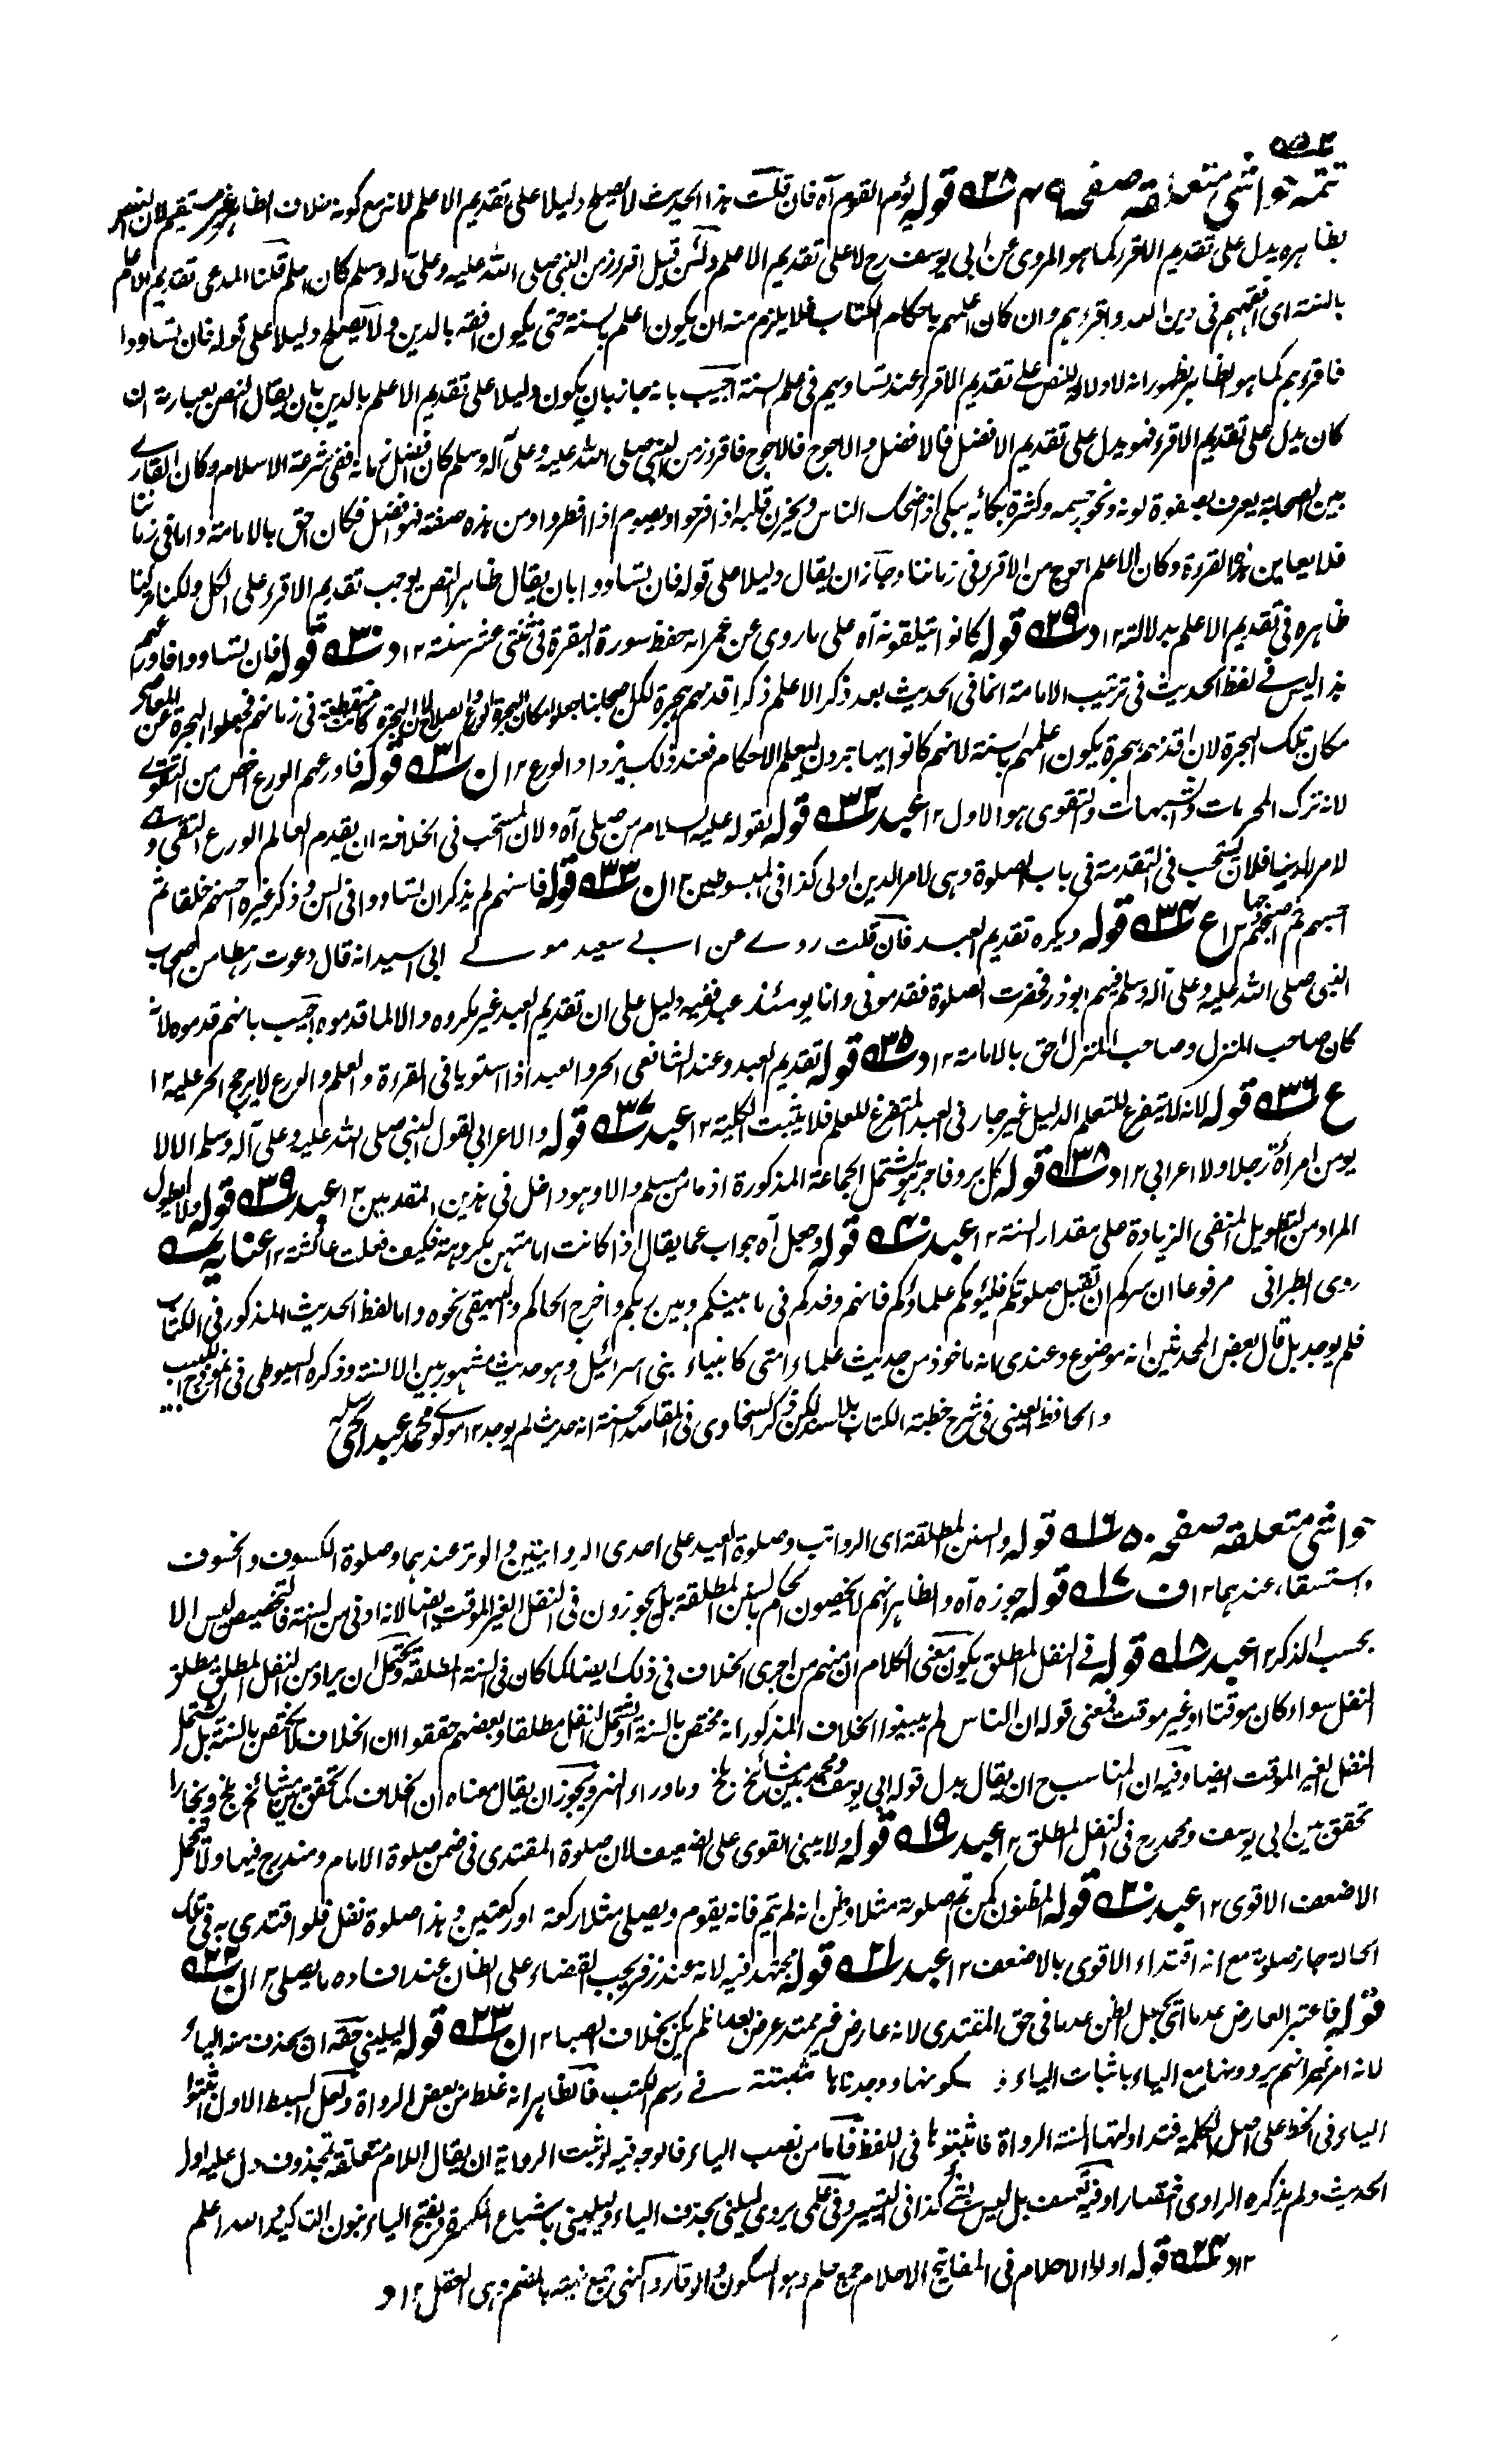 ۵۵۲
تتمہ حواشی متعلقہ صفحہ ۴۹ ۲۸ قولہ یؤم القوم آہ فان قلت ہذا الحدیث لا یصلح دلیلا علی تقدیم الاعلم لانہ مع کونہ خلاف الظاہر غیر مستقیم لان النص
بظاہرہ یدل علی تقدیم الاقرء کما ہو المروی عن ابی یوسف رح لا علی تقدیم الاعلم ولئن قیل اقرء زمن النبی صلی اللہ علیہ وعلی آلہ وسلم کان اعلم قلنا المدعی تقدیم الاعلم
بالسنۃ ای افقہہم فی دین اللہ واقرءہم وان کان اعلمہم باحکام الکتاب فلا یلزم منہ ان یکون اعلم بالسنۃ حتی یکون افقہ بالدین ولا یصلح دلیلا علی قولہ فان تساووا
فاقرءہم کما ہو الظاہر لظہور انہ لا دلالۃ للنص علی تقدیم الاقرء عند تساویہم فی علم السنۃ اجیب بانہ جاز بان یکون دلیلا علی تقدیم الاعلم بالدین بان یقال النص بعبارتہ ان
کان یدل علی تقدیم الاقرء فہو یدل علی تقدیم الافضل فالافضل والاحوج فالاحوج فاقرء زمن النبی صلی اللہ علیہ وعلی آلہ وسلم کان افضل زمانہ ففی شرعۃ الاسلام وکان القاری
بین الصحابۃ یعرف بصفرۃ لونہ ونحو جسمہ وکثرۃ بکائہ یبکی اذا ضحک الناس ویحزن قلبہ اذا فرحوا ویصوم اذا افطروا ومن ہذہ صفتہ فہو افضل فکان احق بالامامۃ واما فی زماننا
فلا یعاین ہذا القرءۃ وکان الاعلم احوج من الاقرء فی زماننا وجاز ان یقال دلیلا علی قولہ فان تساووا بان یقال ظاہر النص یوجب تقدیم الاقرء علی الکل ولکنا ترکنا
ظاہرہ فی تقدیم الاعلم بدلالتہ ۱۲ د ۲۹ قولہ کانوا یتلقونہ آہ علی ما روی عن عمر انہ حفظ سورۃ البقرۃ فی ثنتی عشر سنۃ ۱۲ د ۳۰ قولہ فان تساووا فاورعہم
ہذا لیس فی لفظ الحدیث فی ترتیب الامامۃ انما فی الحدیث بعد ذکر الاعلم ذکر اقدمہم ہجرۃ لکن اصحابنا جعلوا مکان الہجرۃ الورع والصلاح لان الہجرۃ کانت منقطعۃ فی زمانہم فجعلوا الہجرۃ عن المعاصی
مکان تلک الہجرۃ لان اقدمہم ہجرۃ یکون اعلمہم بالسنۃ لانہم کانوا یہاجرون لتعلم الاحکام فعند ذلک یزداد الورع ۱۲ ن ۳۱ قولہ فاورعہم الورع اخص من التقوی
لانہ ترک المحرمات والشبہات والتقوی ہو الاول ۱۲ عبد ۳۲ قولہ لقولہ علیہ السلام من صلی آہ ولان المستحب فی الخلافۃ ان یقدم العالم الورع التقی وہی
لامر الدنیا فلان یستحب فی التقدمۃ فی باب الصلوۃ وہی لامر الدین اولی کذا فی المبسوطین ۱۲ ن ۳۳ قولہ فاسنہم لم یذکر ان تساووا فی السن وذکر غیرہ احسنہم خلقا ثم
احسبہم ثم اصبحہم وجہا ۱۲ ع ۳۴ قولہ ویکرہ تقدیم العبد فان قلت روے عن ابی سعید مولے ابی اسید انہ قال دعوت رہطا من اصحاب
النبی صلی اللہ علیہ وعلی آلہ وسلم فیہم ابوذر فحضرت الصلوۃ فقدمونی وانا یومئذ عبد ففیہ دلیل علی ان تقدیم العبد غیر مکروہ والا لما قدموہ اجیب بانہم قدموہ لانہ
کان صاحب المنزل وصاحب المنزل احق بالامامۃ ۱۲ د ۳۵ قولہ تقدیم العبد وعند الشافعی الحر والعبد اذا استویا فی القرءۃ والعلم والورع لا یرجح الحر علیہ ۱۲
ع ۳۶ قولہ لانہ لا یتفرغ للتعلم الدلیل غیر جار فی العبد المتفرغ للعلم فلا یثبت الکلیۃ ۱۲ عبد ۳۷ قولہ والاعرابی لقول النبی صلی اللہ علیہ وعلی آلہ وسلم الا لا
یومن امرأۃ رجلا ولا اعرابی ۱۲ د ۳۸ قولہ کل بر وفاجر ہو یشتمل الجماعۃ المذکورۃ اذ ما من مسلم والا وہو داخل فی ہذین المتقدمین ۱۲ عبد ۳۹ قولہ ولا یطول
المراد من التطویل المنفی الزیادۃ علی مقدار السنۃ ۱۲ عبد ۴۰ قولہ وحمل آہ جواب عما یقال اذا کانت امامتہن مکروہۃ فکیف فعلت عائشۃ ۱۲ عنایہ
روی الطبرانی مرفوعا ان سرکم ان تقبل صلوتکم فلیؤمکم علماؤکم فانہم وفدکم فی ما بینکم وبین ربکم واخرج الحاکم والبیہقی نحوہ واما لفظ الحدیث المذکور فی الکتاب
فلم یوجد بل قال بعض المحدثین انہ موضوع وعندی انہ ماخوذ من حدیث علماء امتی کانبیاء بنی اسرائیل وہو حدیث مشہور بین الالسنۃ وذکرہ السیوطی فی انموذج اللبیب
والحافظ العینی فی شرح خطبۃ الکتاب بلا سند لکن ذکر السخاوی فی المقاصد الحسنۃ انہ حدیث لم یوجد ۱۲ مولوی محمد عبد الحی سلمہ
حواشی متعلقہ صفحہ ۵۰ ۱۶ قولہ والسنن المطلقۃ ای الرواتب وصلوۃ العید علی احدی الروایتین والوتر عندہما وصلوۃ الکسوف والخسوف
والاستسقاء عندہما ۱۲ ف ۱۷ قولہ جوزہ آہ والظاہر انہم لا یخصون الحکم بالسنن المطلقۃ بل یجوزون فی النفل الغیر الموقت ایضا لانہ ادنی من السنۃ فالتخصیص لیس الا
بحسب الذکر ۱۲ عبد ۱۸ قولہ فے النفل المطلق یکون معنی الکلام ان منہم من اجری الخلاف فی ذلک ایضا کما کان فی السنۃ المطلقۃ ویحتمل ان یراد من النفل المطلق مطلق
النفل سواء کان موقتا او غیر موقت فمعنی قولہ ان الناس لم یبینوا الخلاف المذکور انہ مختص بالسنۃ او یشتمل النفل مطلقا وبعضہم حققوا ان الخلاف لا یختص بالسنۃ بل یشتمل
النفل الغیر الموقت ایضا وفیہ ان المناسب ح ان یقال بدل قولہ ابی یوسف ومحمد بین مشائخ بلخ وماوراء النہر ویجوز ان یقال معناہ ان الخلاف کما تحقق بین مشائخ بلخ وبخارا
تحقق بین ابی یوسف ومحمد رح فی النفل المطلق ۱۲ عبد ۱۹ قولہ ولا یبنی القوی علی الضعیف لان صلوۃ المقتدی فی ضمن صلوۃ الامام ومندرج فیہا ولا یتحمل
الاضعف الاقوی ۱۲ عبد ۲۰ قولہ المظنون کمن تم صلوتہ مثلا وظن انہ لم یتم فانہ یقوم ویصلی مثلا رکعۃ او رکعتین وہذا صلوۃ نفل فلو اقتدی بہ فی تلک
الحالۃ جاز صلوتہ مع انہ اقتداء الاقوی بالاضعف ۱۲ عبد ۲۱ قولہ مجتہد فیہ لانہ عند زفر یجب القضاء علی الظان عند افسادہ ما یصلی ۱۲ ن ۲۲
قولہ فاعتبر العارض عدما ای یجعل الظن عدما فی حق المقتدی لانہ عارض غیر ممتد عرض بعد ما لم یکن بخلاف الصبا ۱۲ ن ۲۳ قولہ لیلینی حقہ ان یحذف منہ الیاء
لانہ امر غیر انہم یروونہا مع الیاء باثبات الیاء و سکونہا ووجدناہا مثبتۃ فے رسم الکتب فالظاہر انہ غلط من بعض الرواۃ ولعل السبط الاول اثبتوا
الیاء فی الخط علی اصل الکلمۃ فتداولتہا السنۃ الرواۃ فاثبتوہا فی اللفظ فاما من نصب الیاء فالوجہ فیہ لو ثبت الروایۃ ان یقال اللام متعلقۃ بمحذوف دل علیہ اول
الحدیث ولم یذکرہ الراوی اختصارا وفیہ تعسف بل لیس بشئ کذا فی التیسیر وفی علمی یروی لیلنی بحذف الیاء ولیلینی باشباع الکسرۃ وبفتح الیاء بنون التاکید واللہ اعلم
۱۲ د ۲۴ قولہ اولوا الاحلام فی المفاتیح الاحلام جمع حلم وہو السکون والوقار والنہی جمع نہیۃ بالضم وہی العقل ۱۲ د